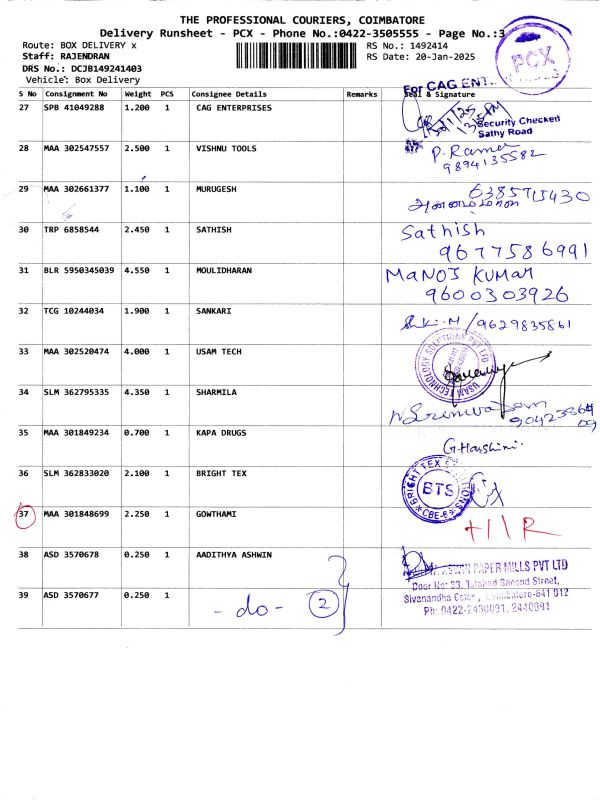 THE PROFESSIONAL COURIERS, COIMBATORE
Delivery Runsheet - PCX - Phone No.:0422-3505555 - Page No.:3
Route: BOX DELIVERY x RS No.: 1492414
Staff: RAJENDRAN RS Date: 20-Jan-2025
DRS No.: DCJB149241403
Vehicle: Box Delivery
PCX
For CAG ENT
S No Consignment No Weight PCS Consignee Details Remarks Seal & Signature
27 SPB 41049288 1.200 1 CAG ENTERPRISES
Security Checked
Sathy Road
28 MAA 302547557 2.500 1 VISHNU TOOLS P. Rama
9894135582
29 MAA 302661377 1.100 1 MURUGESH
30 TRP 6858544 2.450 1 SATHISH Sathish
9677586991
31 BLR 5950345039 4.550 1 MOULIDHARAN MANOJ KUMAR
9600303926
32 TCG 10244034 1.900 1 SANKARI /9629835861
33 MAA 302520474 4.000 1 USAM TECH
USAM TECHNOLOGY SOLUTIONS PVT LTD
34 SLM 362795335 4.350 1 SHARMILA
35 MAA 301849234 0.700 1 KAPA DRUGS G.Harshini
36 SLM 362833020 2.100 1 BRIGHT TEX
BRIGHT TEX
BTS
CBE-6
37 MAA 301848699 2.250 1 GOWTHAMI
38 ASD 3570678 0.250 1 AADITHYA ASHWIN
ASWIN PAPER MILLS PVT LTD
Door No: 23, Tatabad Second Street,
39 ASD 3570677 0.250 1 - do - 2
Sivanandha Colony, Coimbatore-641 012
Ph: 0422-2430091, 2440091